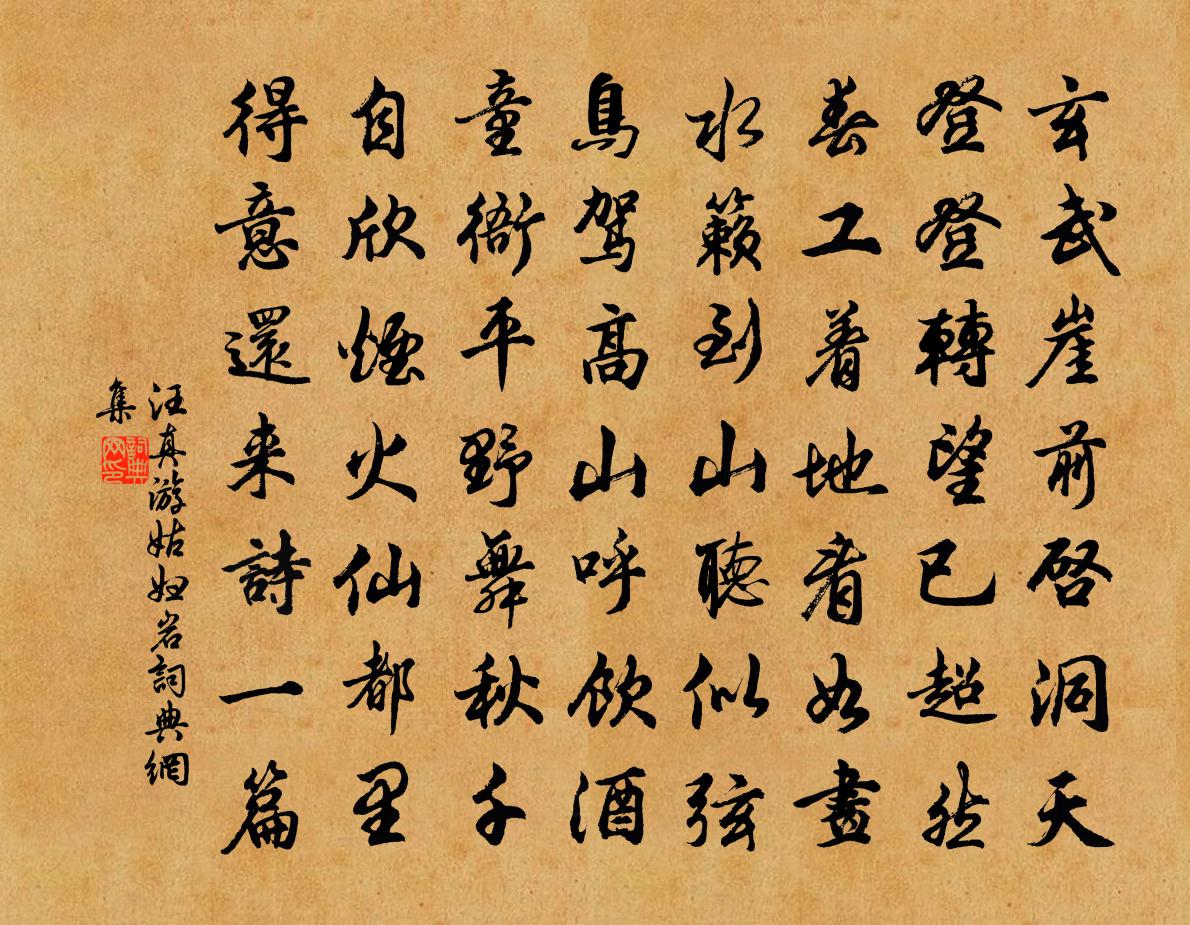 玄武崖前啓洞天
登登轉望已超然
春工着地看如畫
水籟到山聽似弦
鳥駕高山呼飲酒
童衙平野舞秋千
自欣煙火仙都里
得意還来詩一篇
汪真游姑妇岩詞典網
集
詞典網印